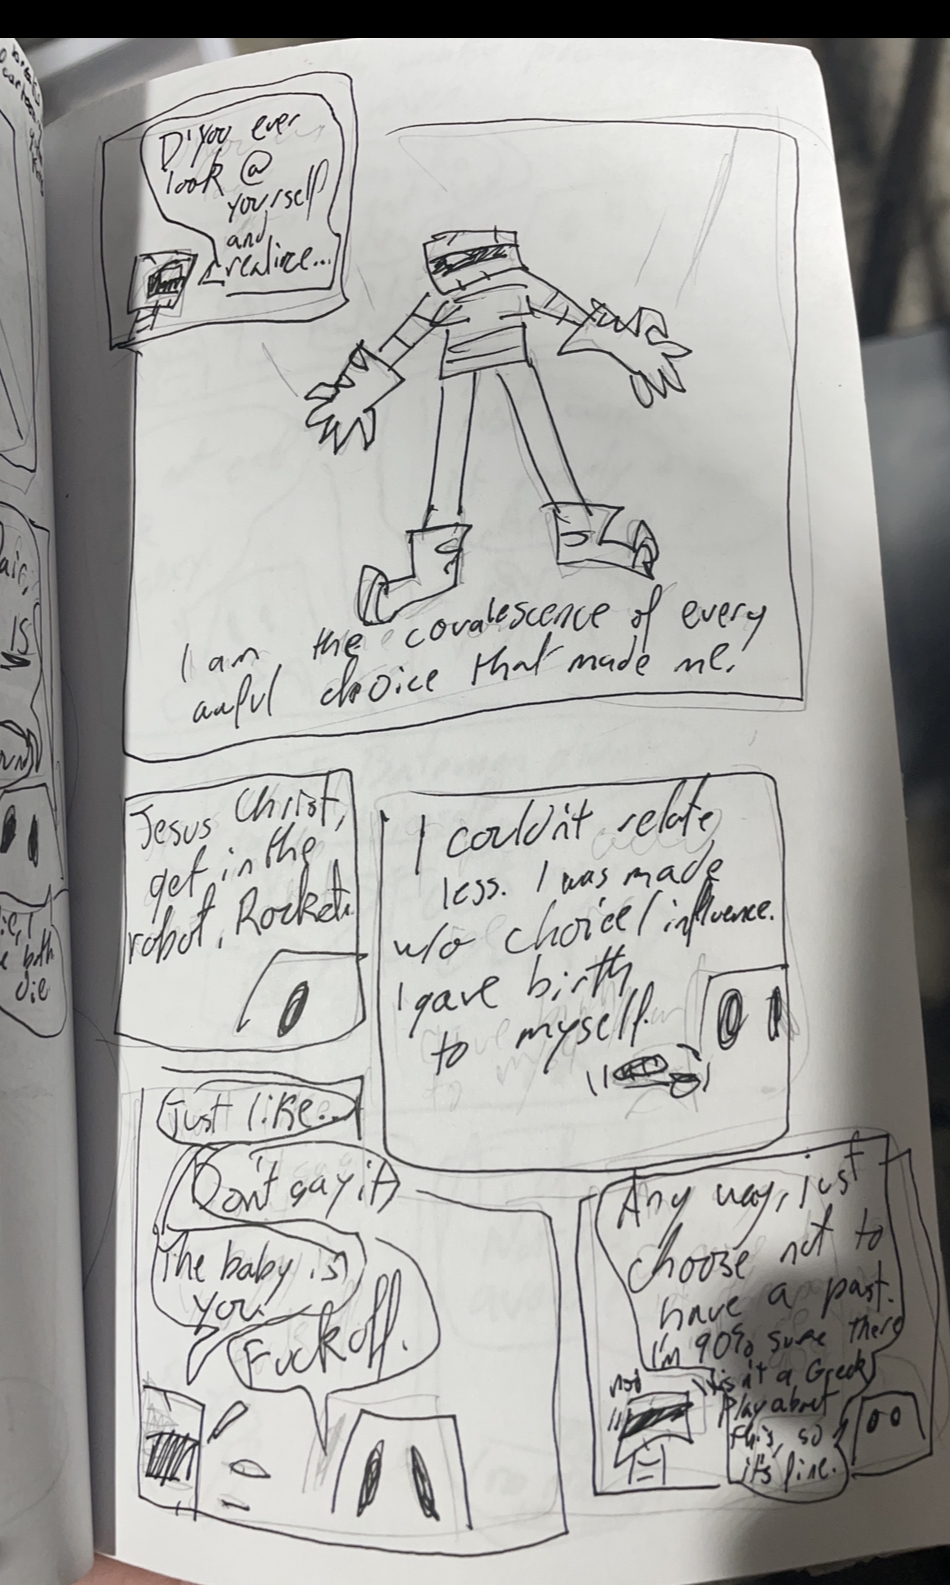 D'you ever
look @
yourself
and
realize...
I am the covalescence of every
awful choice that made me.
Jesus Christ,
get in the
robot, Rocket.
I couldn't relate
less. I was made
w/o choice/influence.
I gave birth
to myself.
Just like...
Don't say it)
The baby is
you.
Fuck off.
Any way, just
choose not to
have a past.
I'm 90% sure there
isn't a Greek
play about
this, so
it's fine.
nod
die